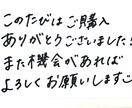 このたびはご購入
ありがとうございました!
また機会があれば
よろしくお願いしますこ